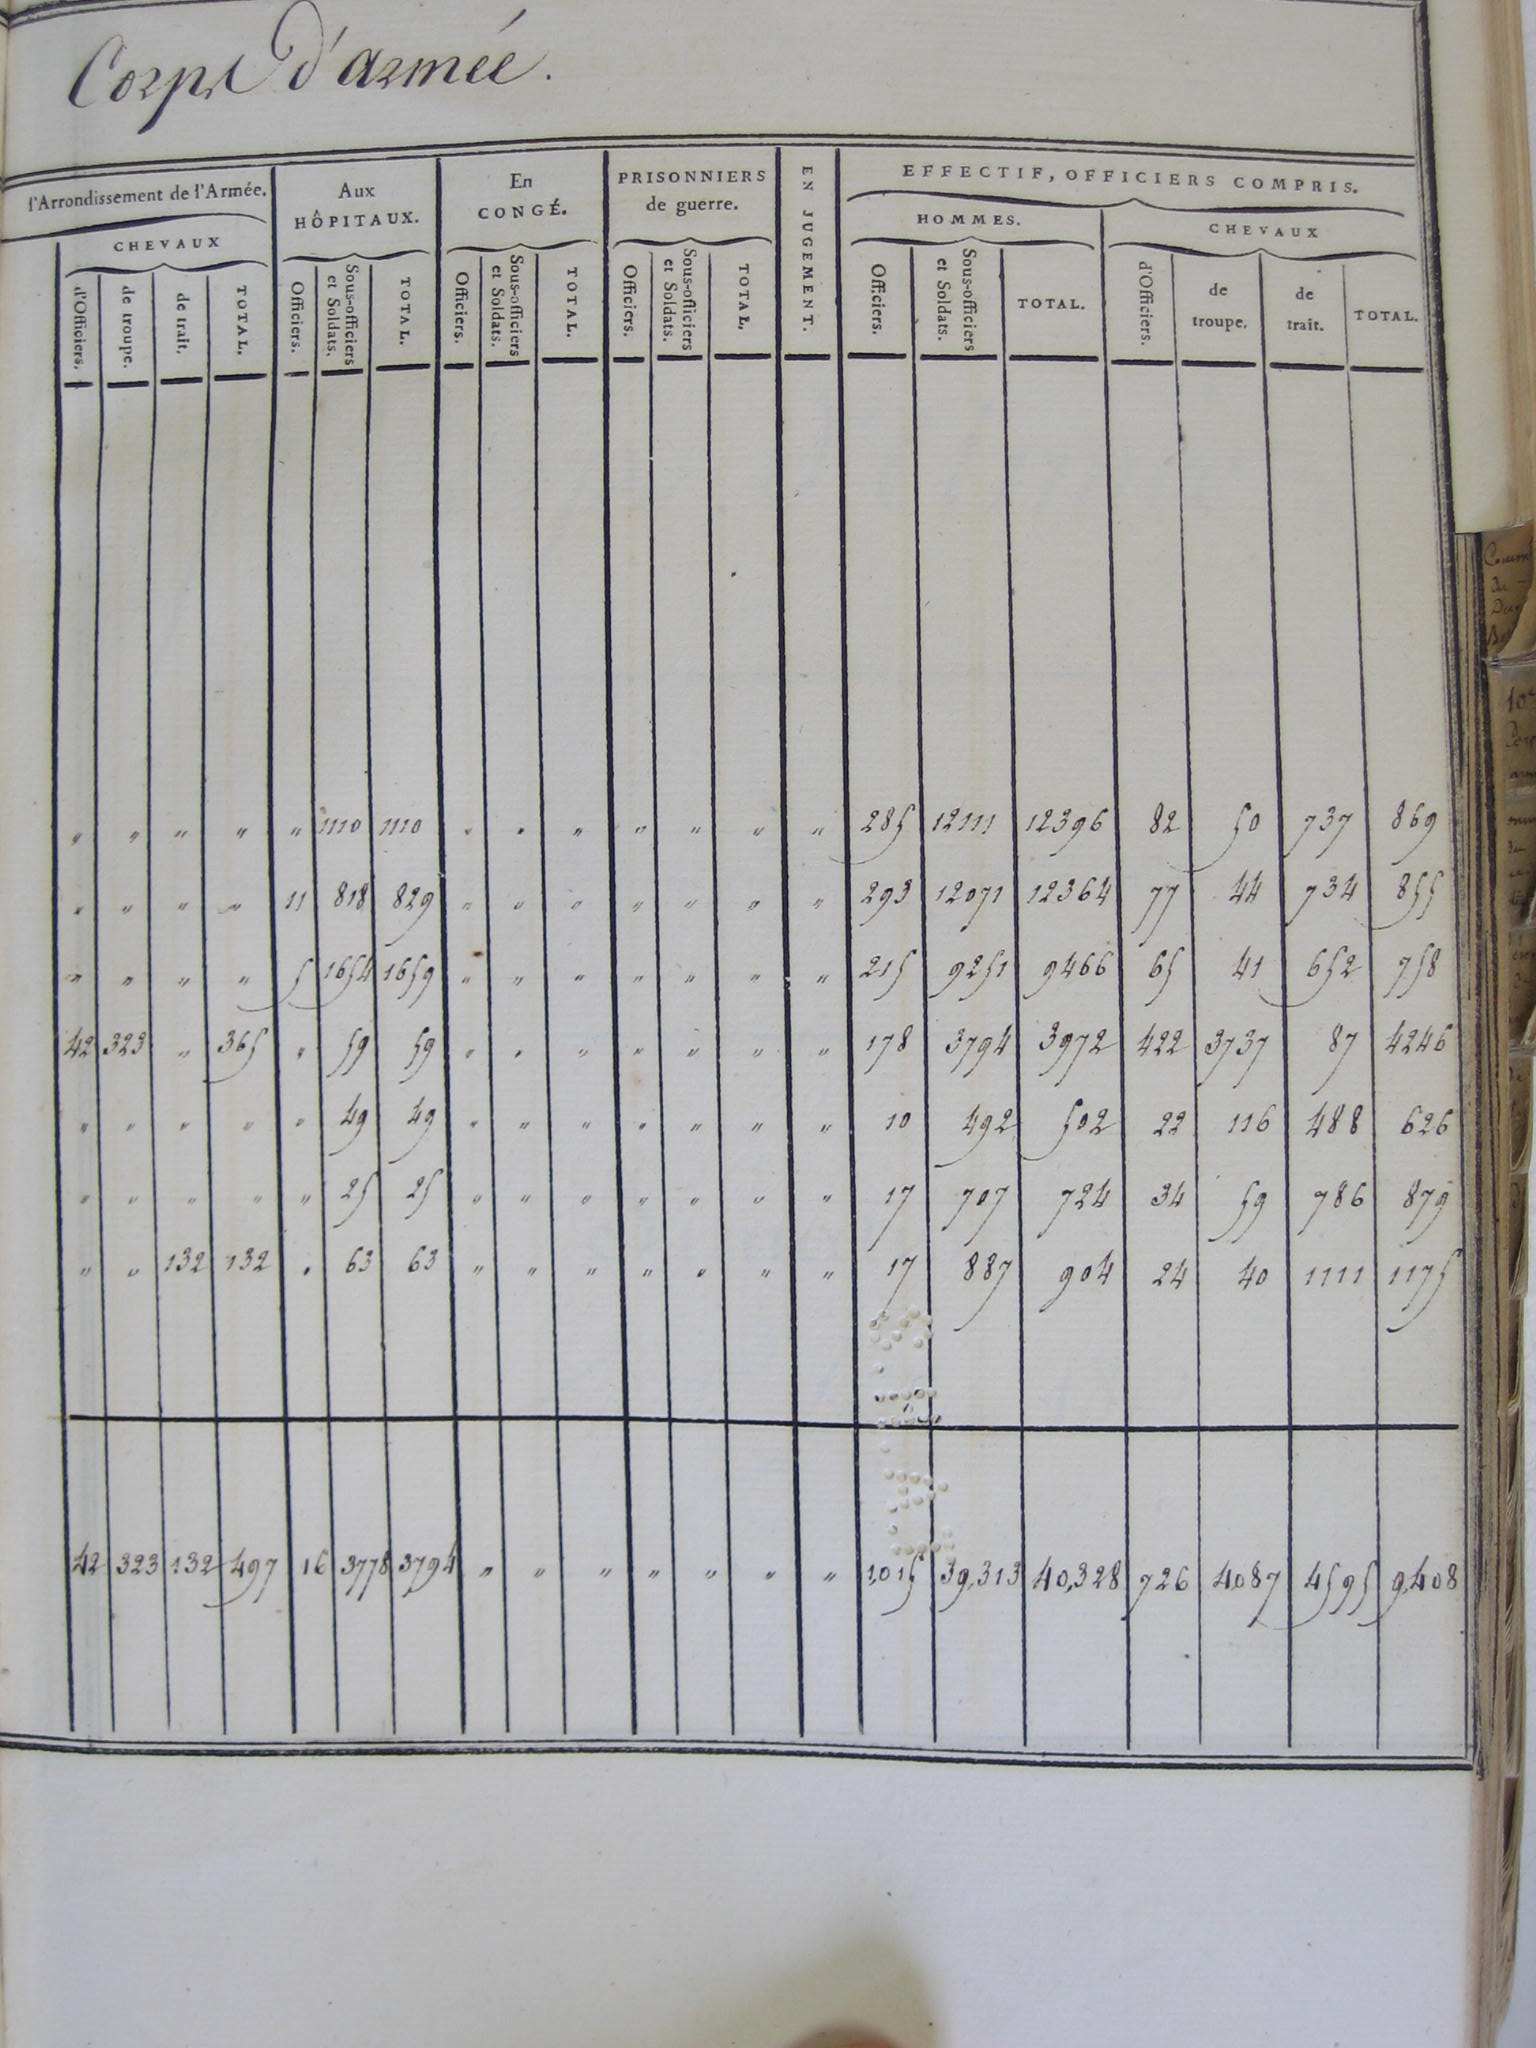 Corps d'armée.
l'Arrondissement de l'Armée. Aux HÔPITAUX. En CONGÉ. PRISONNIERS de guerre. EN JUGEMENT. EFFECTIF, OFFICIERS COMPRIS.
CHEVAUX HOMMES. CHEVAUX
d'Officiers. de troupe. de trait. TOTAL. Officiers. Sous-officiers et Soldats. TOTAL. Officiers. Sous-officiers et Soldats. TOTAL. Officiers. Sous-officiers et Soldats. TOTAL. Officiers. Sous-officiers et Soldats. TOTAL. d'Officiers. de troupe. de trait. TOTAL.
" " " " " 1110 1110 " " " " " " " 285 12111 12396 82 50 737 869
" " " " 11 818 829 " " " " " " " 293 12071 12364 77 44 734 855
" " " " 5 1654 1659 " " " " " " " 215 9251 9466 65 41 652 758
42 323 " 365 " 59 59 " " " " " " " 178 3794 3972 422 3737 87 4246
" " " " " 49 49 " " " " " " " 10 492 502 22 116 488 626
" " " " " 25 25 " " " " " " " 17 707 724 34 59 786 879
" " 132 132 " 63 63 " " " " " " " 17 887 904 24 40 1111 1175
42 323 132 497 16 3778 3794 " " " " " " " 1,015 39,313 40,328 726 4,087 4595 9,408